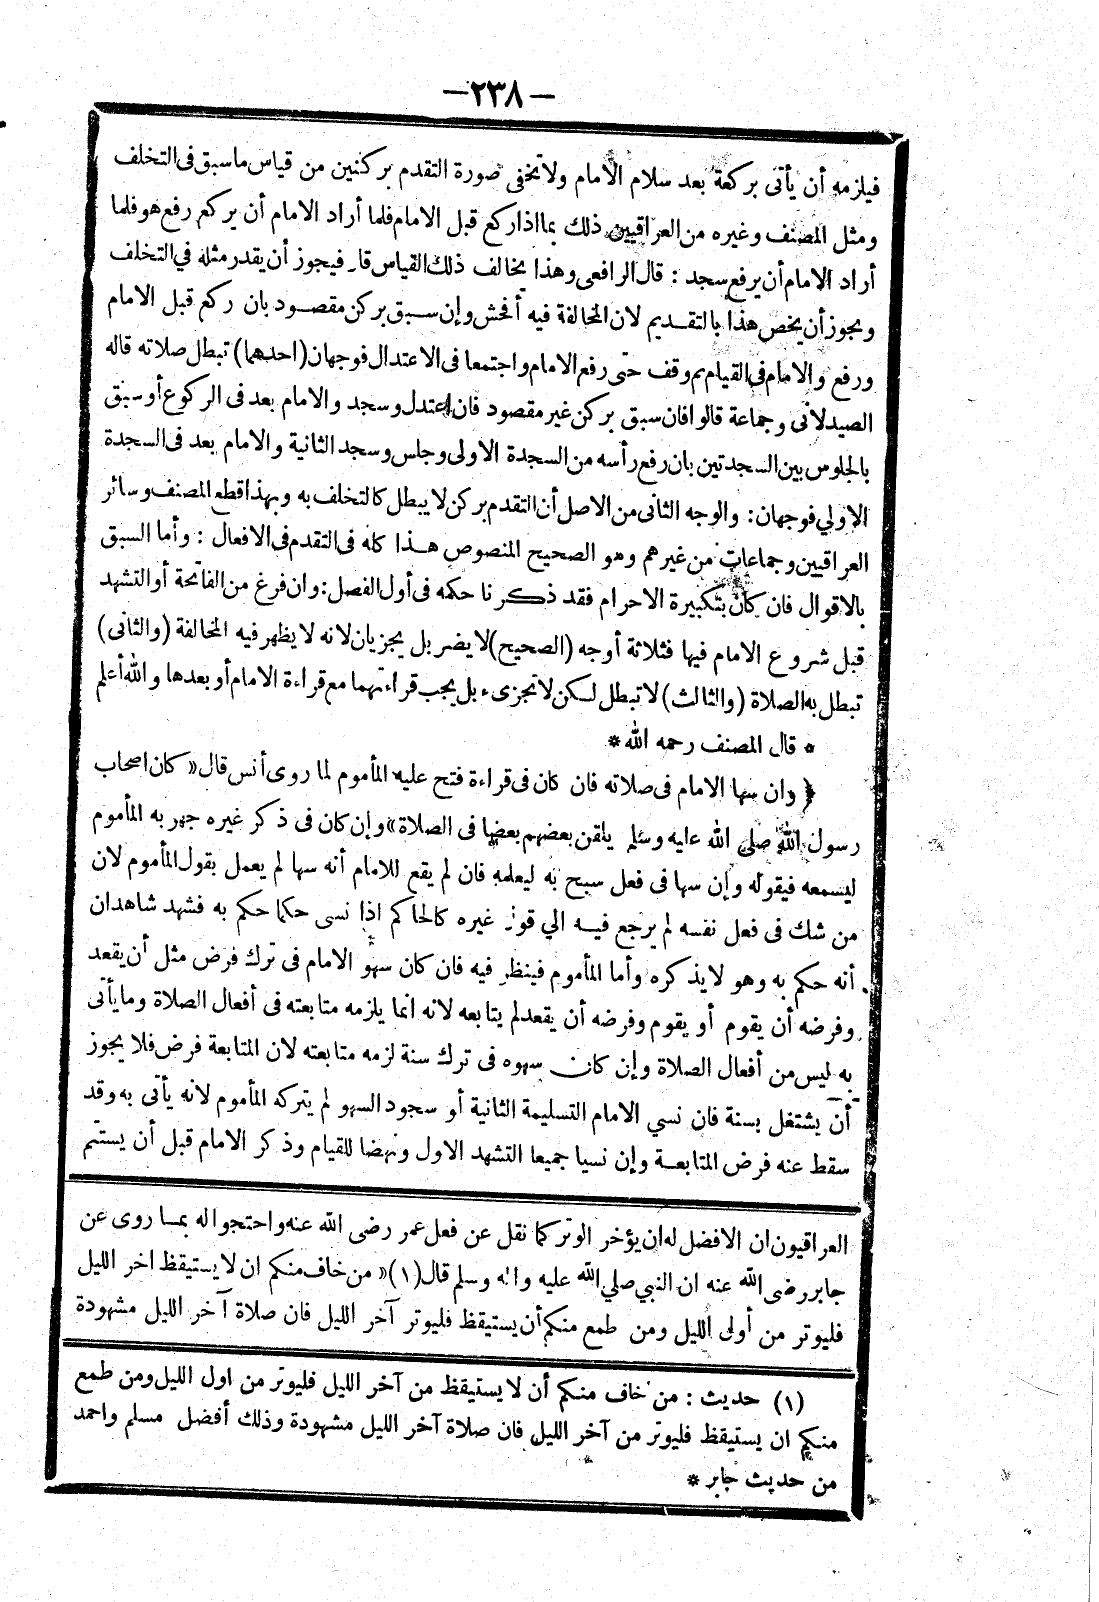 —٢٣٨—
فيلزمه أن يأتى بركعة بعد سلام الامام ولا تخفى صورة التقدم بركنين من قياس ما سبق فى التخلف
ومثل المصنف وغيره من العراقيين ذلك بما اذا ركع قبل الامام فلما أراد الامام أن يركع رفع هو فلما
أراد الامام أن يرفع سجد : قال الرافعى وهذا يخالف ذلك القياس قال فيجوز أن يقدر مثله في التخلف
ويجوز أن يخص هذا بالتقديم لان المخالفة فيه أفحش وإن سبق بركن مقصود بان ركع قبل الامام
ورفع والامام في القيام ثم وقف حتى رفع الامام واجتمعا فى الاعتدال فوجهان (احدهما) تبطل صلاته قاله
الصيدلانى وجماعة قالوا فان سبق بركن غير مقصود فان اعتدل وسجد والامام بعد فى الركوع أو سبق
بالجلوس بين السجدتين بان رفع رأسه من السجدة الاولى وجلس وسجد الثانية والامام بعد فى السجدة
الاولي فوجهان : والوجه الثانى من الاصل أن التقدم بركن لا يبطل كالتخلف به وبهذا قطع المصنف وسائر
العراقيين وجماعات من غيرهم وهو الصحيح المنصوص هذا كله فى التقدم فى الافعال : وأما السبق
بالاقوال فان كان بتكبيرة الاحرام فقد ذكرنا حكمه فى أول الفصل : وان فرغ من الفاتحة أو التشهد
قبل شروع الامام فيها فثلاثة أوجه (الصحيح) لا يضر بل يجزيان لانه لا يظهر فيه المخالفة (والثانى)
تبطل به الصلاة (والثالث) لا تبطل لكن لا تجزىء بل يجب قراءتهما مع قراءة الامام أو بعدها والله أعلم
* قال المصنف رحمه الله *
﴿ وان سها الامام فى صلاته فان كان فى قراءة فتح عليه المأموم لما روى أنس قال « كان اصحاب
رسول الله صلى الله عليه وسلم يلقن بعضهم بعضها فى الصلاة » وإن كان فى ذكر غيره جهر به المأموم
ليسمعه فيقوله وإن سها فى فعل سبح به ليعلمه فان لم يقع للامام أنه سها لم يعمل بقول المأموم لان
من شك فى فعل نفسه لم يرجع فيه الي قول غيره كالحاكم اذا نسى حكما حكم به فشهد شاهدان
أنه حكم به وهو لا يذكره وأما المأموم فينظر فيه فان كان سهو الامام فى ترك فرض مثل أن يقعد
وفرضه أن يقوم أو يقوم وفرضه أن يقعد لم يتابعه لانه انما يلزمه متابعته فى أفعال الصلاة وما يأتى
به ليس من أفعال الصلاة وإن كان سهوه فى ترك سنة لزمه متابعته لان المتابعة فرض فلا يجوز
أن يشتغل بسنة فان نسي الامام التسليمة الثانية أو سجود السهو لم يتركه المأموم لانه يأتى به وقد
سقط عنه فرض المتابعة وإن نسيا جميعا التشهد الاول ونهضا للقيام وذكر الامام قبل أن يستتم
العراقيون ان الافضل له ان يؤخر الوتر كما نقل عن فعل عمر رضى الله عنه واحتجوا له بما روى عن
جابر رضى الله عنه ان النبي صلي الله عليه واله وسلم قال (١) « من خاف منكم ان لا يستيقظ اخر الليل
فليوتر من أولى الليل ومن طمع منكم أن يستيقظ فليوتر آخر الليل فان صلاة آخر الليل مشهودة
(١) حديث : من خاف منكم أن لا يستيقظ من آخر الليل فليوتر من اول الليل ومن طمع
منكم ان يستيقظ فليوتر من آخر الليل فان صلاة آخر الليل مشهودة وذلك أفضل مسلم واحمد
من حديث جابر *